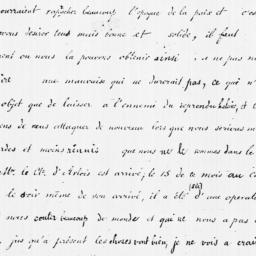 pourraient rapprocher beaucoup l'époque de la paix et c'est
vous désirer tous mais bonne et solide, il faut
ent ou nous la pouvons obtenir ainsi ne pas
ire une mauvaise qui ne durerait pas, ce qui n'
objet que de laisser à l'ennemi du reprendre haleine, et
ens de nous attaquer de nouveau lors que nous serions m
rdés et moins réunis que nous ne le sommes dans le
Mr. le Ct. d'Artois est arrivé, le 15 de ce mois au ca
le soir même de son arrivé, il a été d'une operat
nous couter beaucoup de monde et qui ne nous a pas
jus qu'à présent les choses vont bien, je ne vois a crain